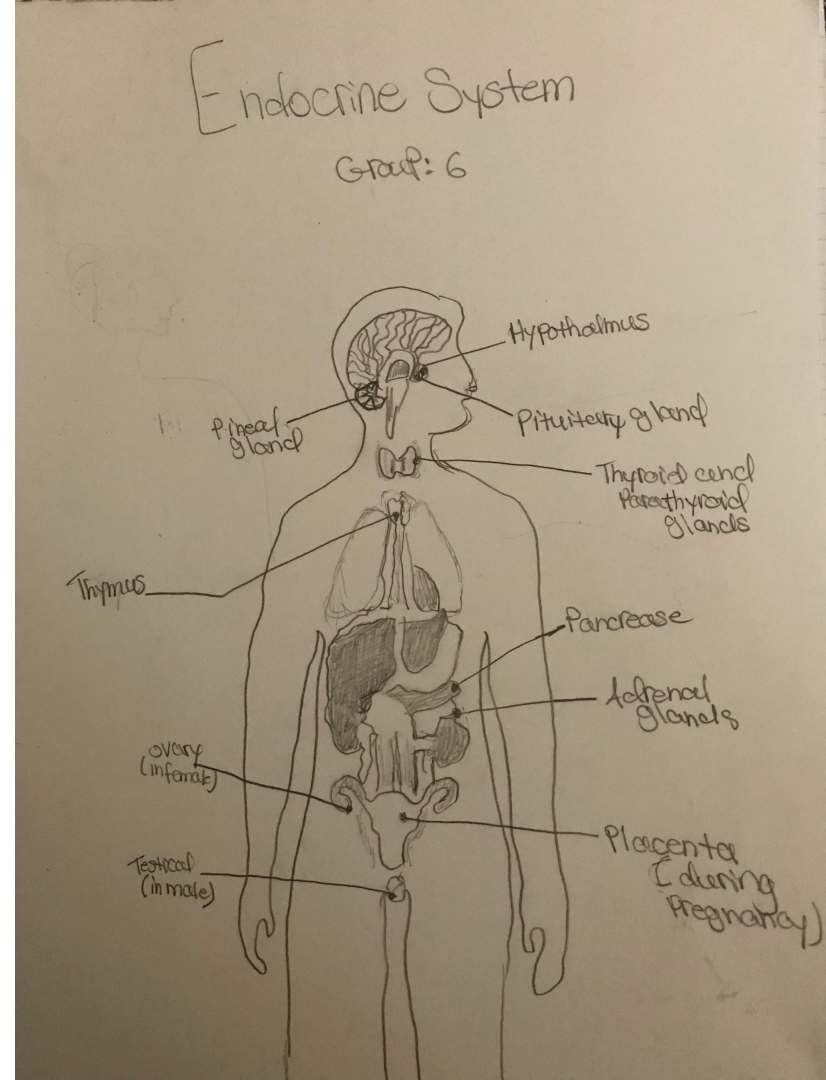 Endocrine System
Group: 6
Hypothalmus
Pineal
gland
Pituitary gland
Thyroid and
Parathyroid
glands
Thymus
Pancrease
Adrenal
glands
ovary
(in female)
Placenta
(during
pregnancy)
Testical
(in male)